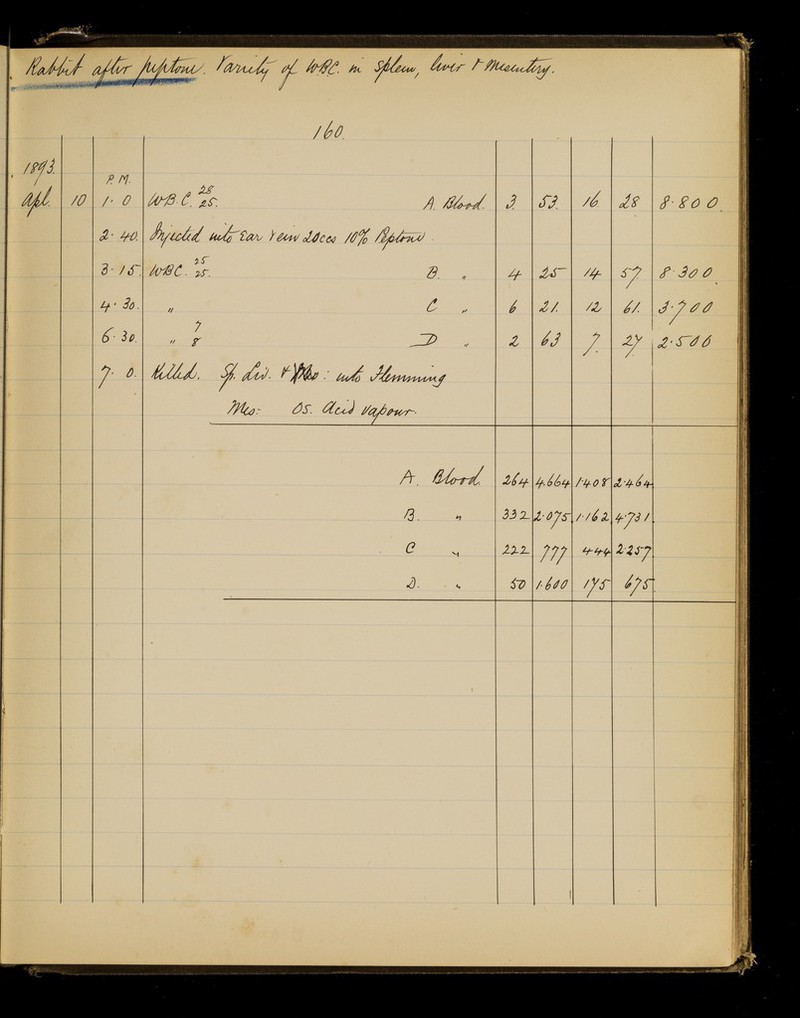 Rabbit after peptone. Variety of WBC. in Spleen, liver & Mesentery.
160.
1893.
P.M.
Apl. 10 1. 0 W.B.C. 28 25. A. Blood. 3. 53. 16 28 8.800.
2. 40. Injected into Ear Vein 20ccs 10% Peptone.
3. 15. WBC. 25 25. B. " 4 25 14 57. 8.300
4. 30. " C " 6 21. 12 61. 3.700
6. 30. " 7 8 D " 2 63 7. 27 2.500
7. 0. Killed. Sp. Liv. & : into Flemming
Mes: Os. Acid Vapour.
A. Blood. 264 4.664 1.408 2.464
B. " 332 2.075 1.162 4.731.
C " 222 777 444 2.257.
D. " 50 1.600 175 675.